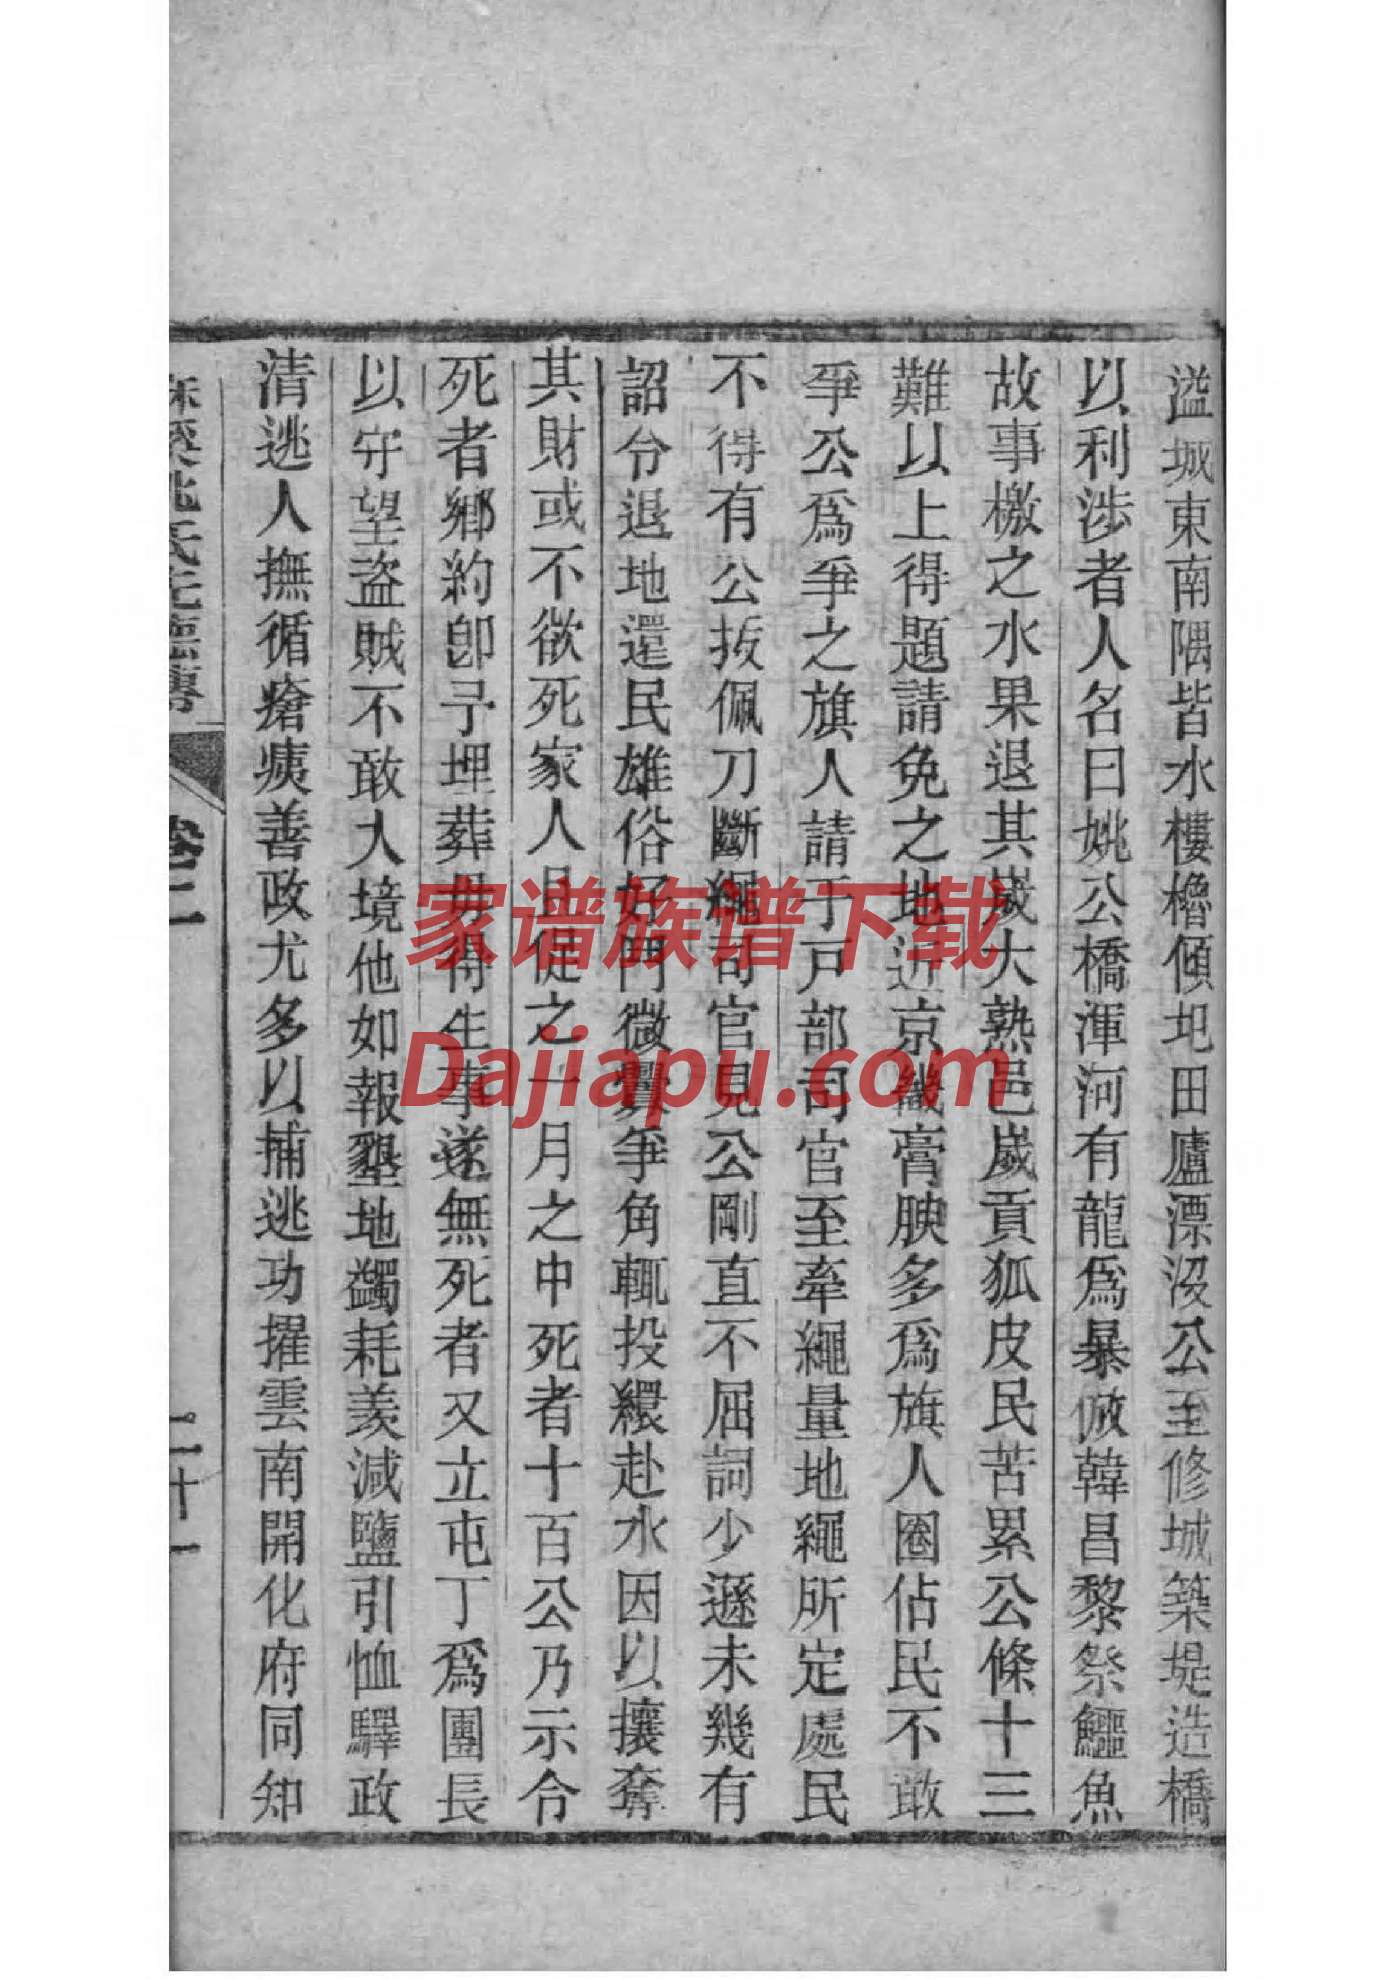 溢城東南隅皆水樓櫓傾圯田廬漂沒公至修城築堤造橋
以利涉者人名曰姚公橋渾河有龍爲暴倣韓昌黎祭鱷魚
故事檄之水果退其嵗大熟邑嵗貢狐皮民苦累公條十三
難以上得題請免之地近京畿膏腴多爲旗人圈佔民不敢
爭公爲爭之旗人請于戸部司官至牽繩量地繩所定處民
不得有公拔佩刀斷繩司官見公剛直不屈詞少遜未幾有
詔分退地還民雄俗好鬥微釁爭角輒投繯赴水因以攘奪
其財或不欲死家人且促之一月之中死者十百公乃示令
死者鄉約卽予埋葬毋得生事遂無死者又立屯丁爲團長
以守望盜賊不敢入境他如報墾地蠲耗羨減鹽引恤驛政
清逃人撫循瘡痍善政尤多以捕逃功擢雲南開化府同知
麻溪姚氏先德傳 卷二 二十一
家谱族谱下载
Dajiapu.com